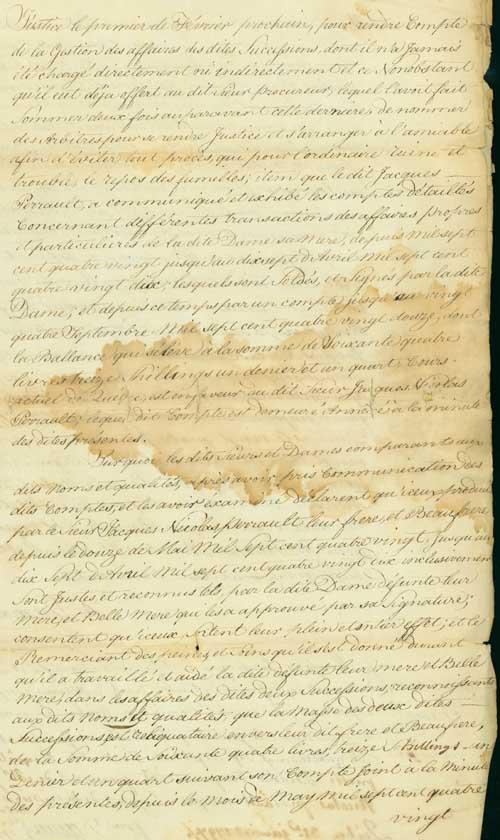 Justice le premier de Février prochain, pour rendre Compte
de la Gestion des affaires des dites Successions, dont il n'a Jamais
été chargé directement ni indirectement et ce Nonobstant
qu'il eut déja offert au dit Sieur procureur, lequel l'avoit fait
Sommer deux fois auparavant cette derniere, de nommer
des Arbitres pour se rendre Justice et s'arranger à l'amiable
afin d'éviter tout procès, qui pour l'ordinaire ruine et
trouble le repos des familles; item que le dit Jacques
Perrault, a communiqué et exhibé les comptes détaillés
Concernant différentes transactions des affaires propres
et particulieres de la dite Dame sa Mere, depuis Mil sept
cent quatre vingt jusqu'au dix sept d'Avril Mil sept cent
quatre vingt dix, lesquels sont Soldés, et Signés par la dite
Dame, et depuis ce temps par un compte jusqu'au vingt
quatre Septembre Mil sept cent quatre vingt douze, dont
la Ballance qui s'éleve à la somme de Soixante quatre
livres treize Shillings un denier et un quart, Cours
actuel de Québec, est en faveur du dit Sieur Jacques Nicolas
Perrault, lequel dit Compte est demeuré Annexé à la minute
des dites présentes.
Sur quoi les dits Sieurs et Dames comparants aux
dits noms et qualités, après avoir pris Communication des
dits Comptes, et les avoir éxaminé déclarent que iceux produits
par le Sieur Jacques Nicolas Perrault leur frere, et Beaufrere
depuis le douze de Mai Mil Sept cent quatre vingt, jusqu'au
dix Sept d'Avril Mil sept cent quatre vingt dix inclusivement
sont Justes et reconnus tels par la dite Dame défunte leur
Mere, et Belle Mere qui les a approuvé par sa Signature;
consentent qu'iceux sortent leur plein et entier effet; et le
Remerciant des peines et Soins qu'il s'est donné durant
qu'il a travaillé et aidé la dite défunte leur mere et Belle
Mere, dans les affaires des dites deux Successions, reconnoissants
aux dits Noms et qualités, que la Masse des deux dites
Successions est reliquataire envers leur dit frere et Beaufrere,
de la Somme de Soixante quatre livres, treize Shillings un
Denier et un quart suivant son Compte Joint à la Minute
des présentes, depuis le mois de May mil sept cent quatre
vingt